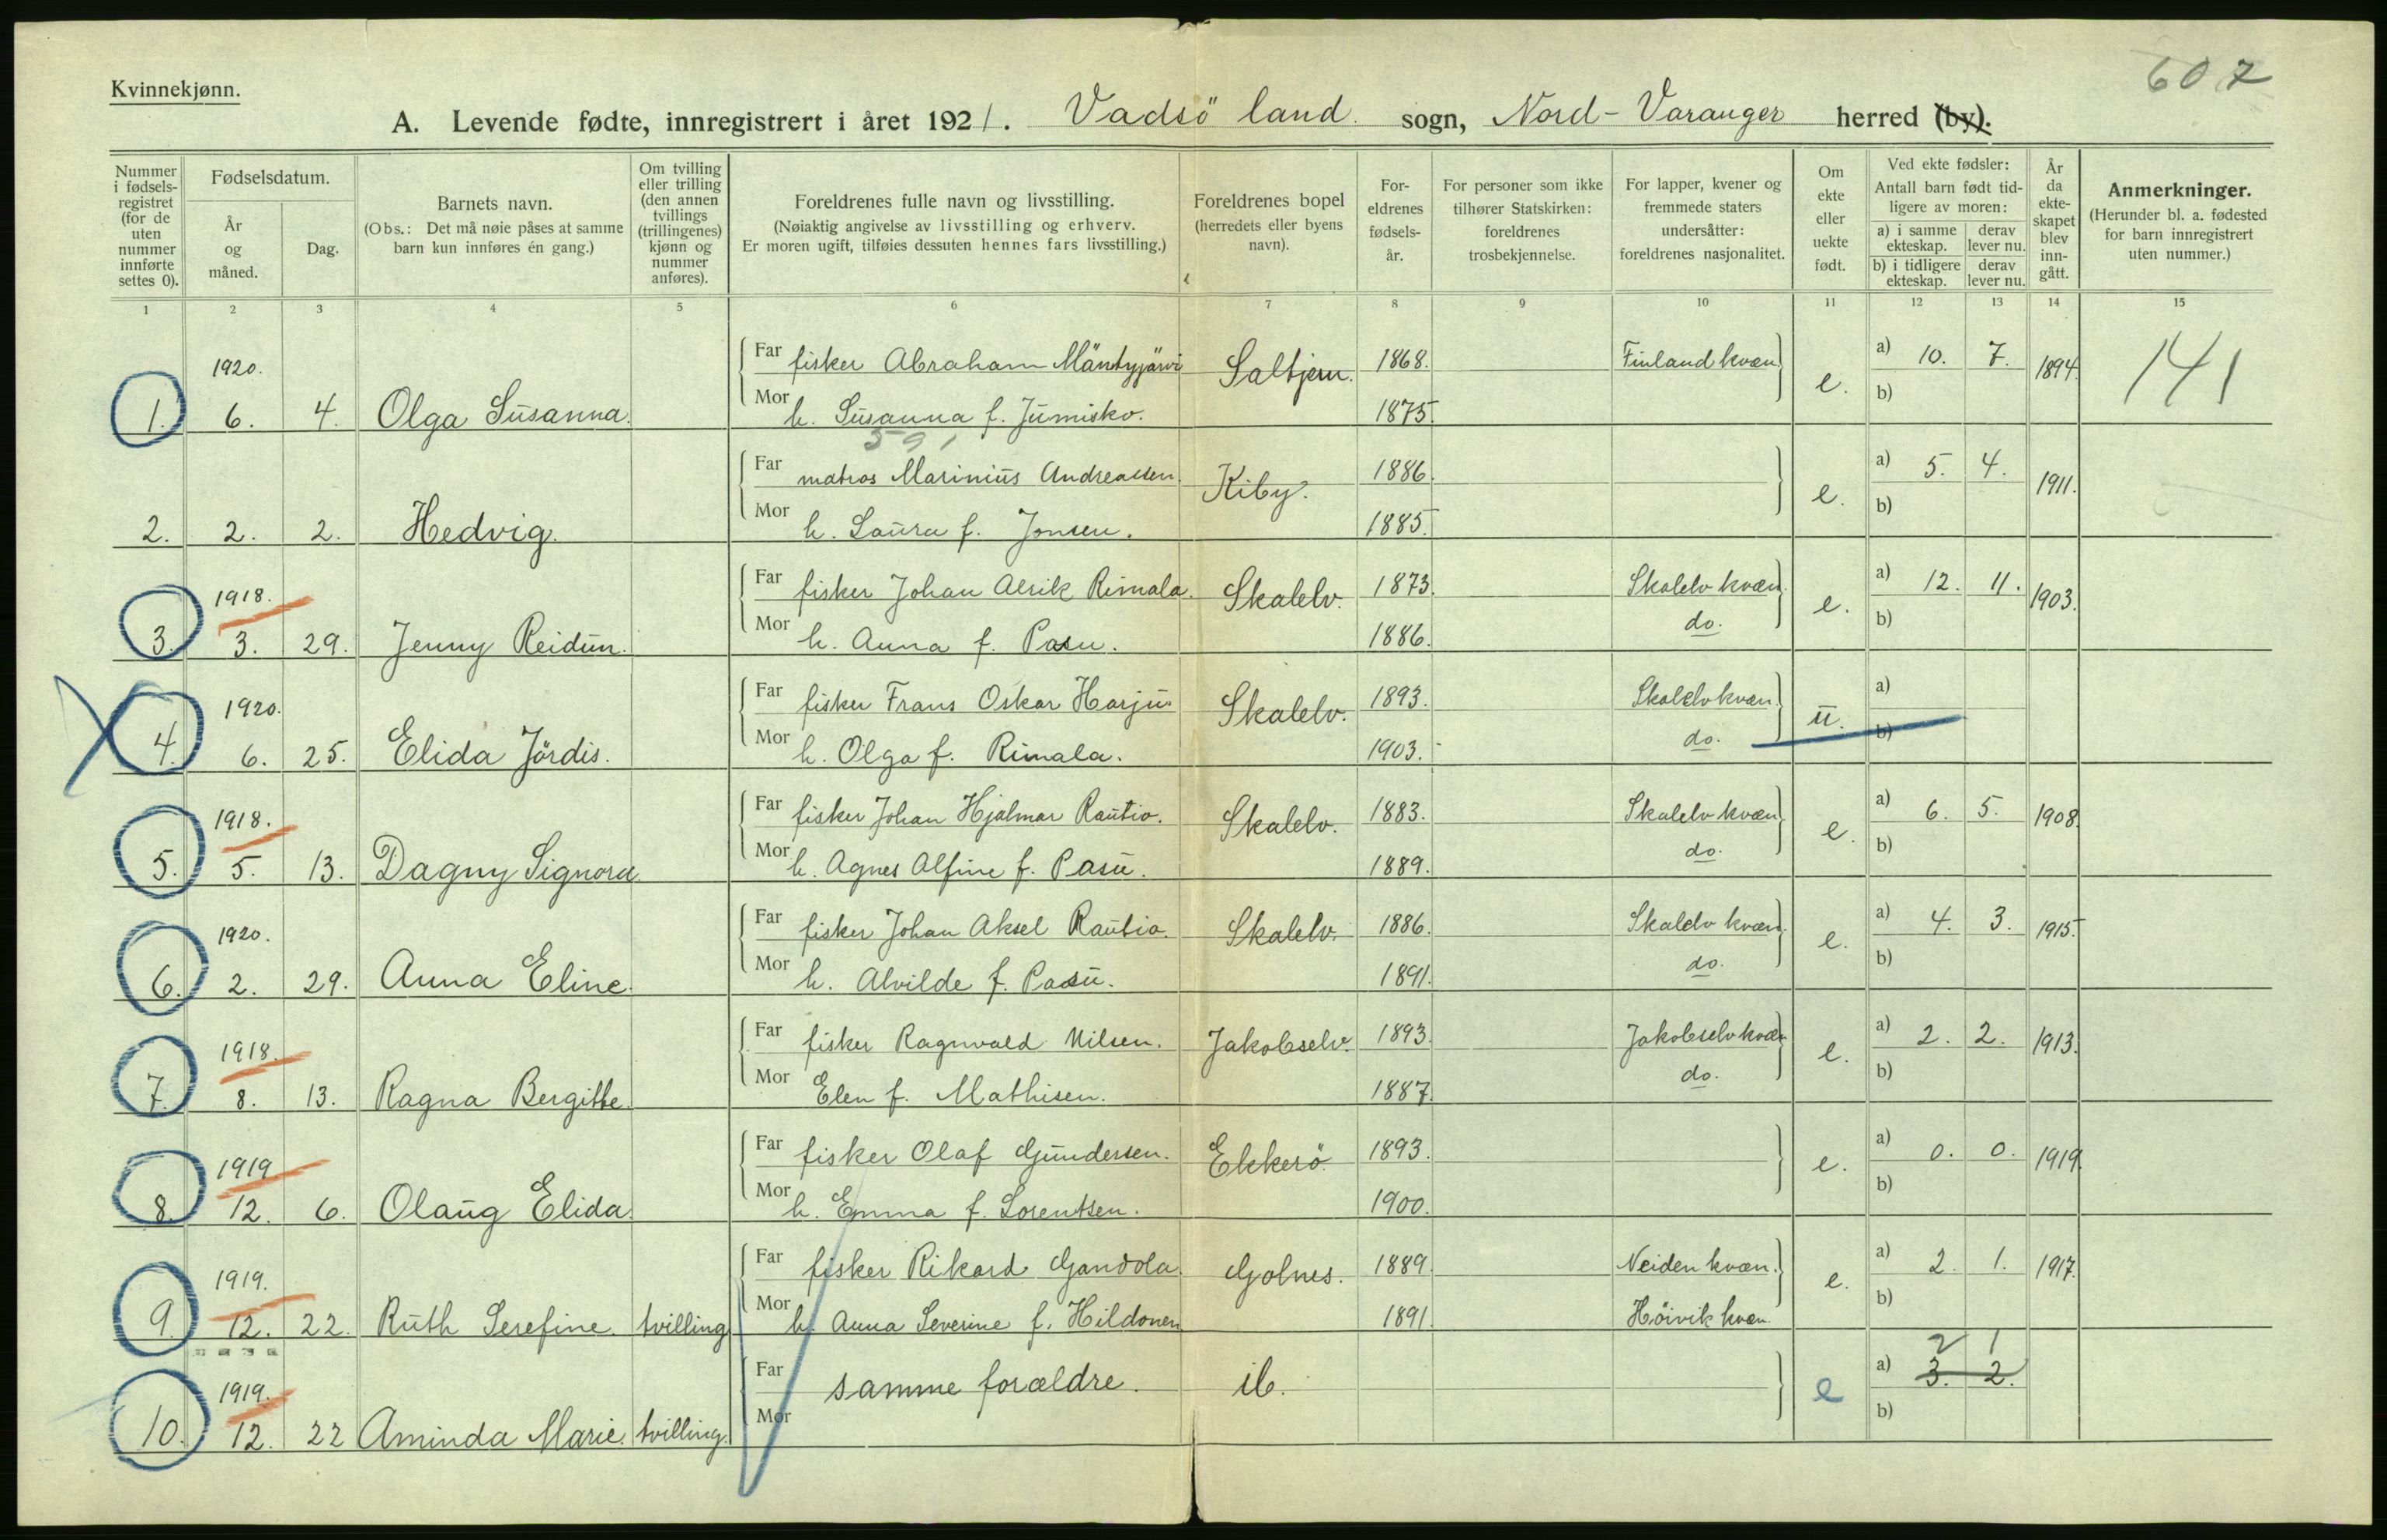 Kvinnekjønn.
607
A. Levende fødte, innregistrert i året 1921. Vadsö land sogn, Nord-Varanger herred (by).
Nummer i fødsels-registret (for de uten nummer innførte settes 0).
Fødselsdatum.
År og måned.
Dag.
Barnets navn.
(Obs.: Det må nøie påses at samme barn kun innføres én gang.)
Om tvilling eller trilling (den annen tvillings (trillingenes) kjønn og nummer anføres).
Foreldrenes fulle navn og livsstilling.
(Nøiaktig angivelse av livsstilling og erhverv.
Er moren ugift, tilføies dessuten hennes fars livsstilling.)
Foreldrenes bopel
(herredets eller byens navn).
For-eldrenes fødsels-år.
For personer som ikke tilhører Statskirken: foreldrenes trosbekjennelse.
For lapper, kvener og fremmede staters undersåtter: foreldrenes nasjonalitet.
Om ekte eller uekte født.
Ved ekte fødsler:
Antall barn født tid-ligere av moren:
a) i samme ekteskap. derav lever nu.
b) i tidligere ekteskap. derav lever nu.
År da ekte-skapet blev inn-gått.
Anmerkninger.
(Herunder bl. a. fødested for barn innregistrert uten nummer.)
1 2 3 4 5 6 7 8 9 10 11 12 13 14 15
1920. Far fisker Abraham Mäntyjärvi Saltjern. 1868. Finland kvæn e. a) 10. 7. 1894. 141
1. 6. 4. Olga Susanna. Mor h. Susanna f. Jumisko. 1875. b)
591
Far matros Marinius Andreassen. Kiby. 1886. e. a) 5. 4. 1911.
2. 2. 2. Hedvig. Mor h. Laura f. Jonsen. 1885. b)
1918. Far fisker Johan Alrik Rimala. Skalelv. 1873. Skalelv kvæn e. a) 12. 11. 1903.
3. 3. 29. Jenny Reidun. Mor h. Anna f. Pasu. 1886. do. b)
1920. Far fisker Frans Oskar Harju Skalelv. 1893. Skalelv kvæn. u. a)
4. 6. 25. Elida Jördis. Mor h. Olga f. Rimala. 1903. do. b)
1918. Far fisker Johan Hjalmar Rautio. Skalelv. 1883. Skalelv kvæn e. a) 6. 5. 1908.
5. 5. 13. Dagny Signora. Mor h. Agnes Alfine f. Pasu. 1889. do. b)
1920. Far fisker Johan Aksel Rautio. Skalelv. 1886. Skalelv kvæn. e. a) 4. 3. 1915.
6. 2. 29. Anna Eline. Mor h. Alvilde f. Pasu. 1891. do. b)
1918. Far fisker Ragnvald Nilsen. Jakobselv. 1893. Jakobselv kvæn e. a) 2. 2. 1913.
7. 8. 13. Ragna Bergitte. Mor Elen f. Mathisen. 1887. do. b)
1919 Far fisker Olaf Gundersen. Ekkerö. 1893. e. a) 0. 0. 1919.
8. 12. 6. Olaug Elida. Mor h. Emma f. Lorentsen. 1900. b)
1919. Far fisker Rikard Gandola. Golnes. 1889. Neiden kvæn. e. a) 2. 1. 1917.
9. 12. 22. Ruth Serefine. tvilling Mor h. Anna Severine f. Hildonen 1891. Höivik kvæn. b)
2 1
1919. Far samme forældre. ib. e a) 3. 2.
10. 12. 22 Aminda Marie. tvilling. Mor b)